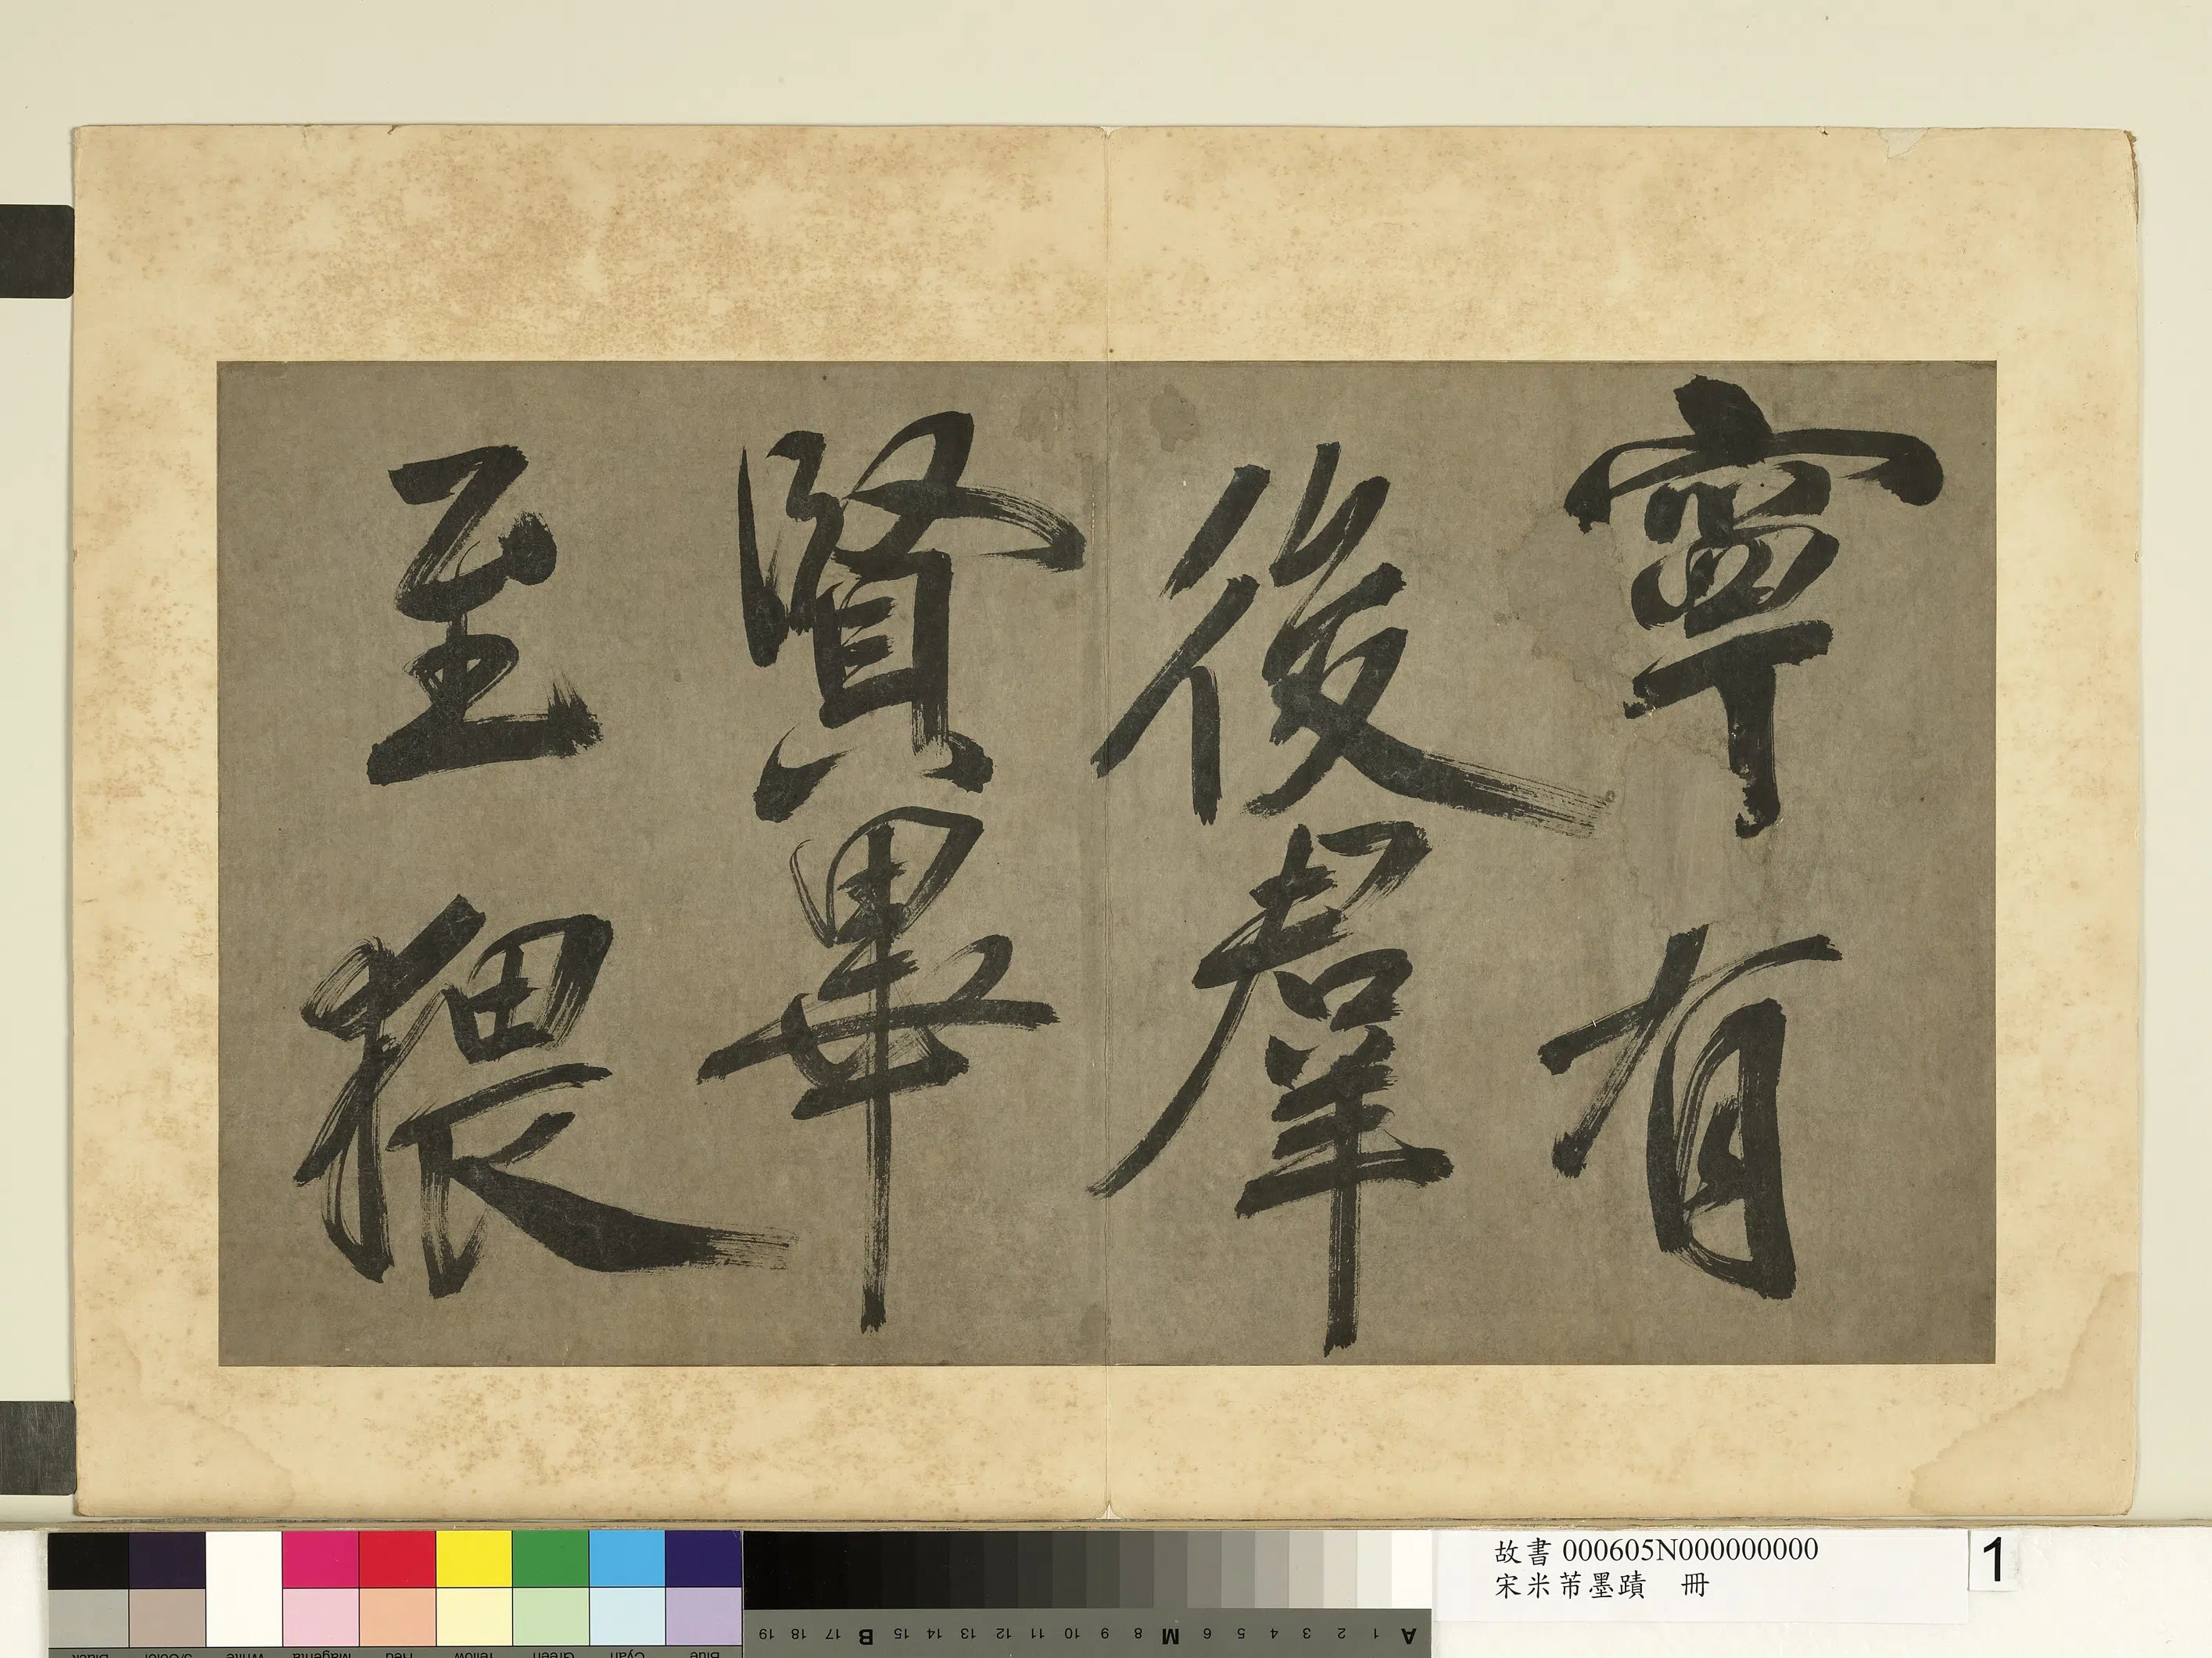 寧有
後群
賢畢
至猥
故書 000605N000000000
宋米芾墨蹟 冊
1
19 18 17 B 15 14 13 12 11 10 9 8 M 6 5 4 3 2 1 A
Black 3/Color White Magenta Red Yellow Green Cyan Blue